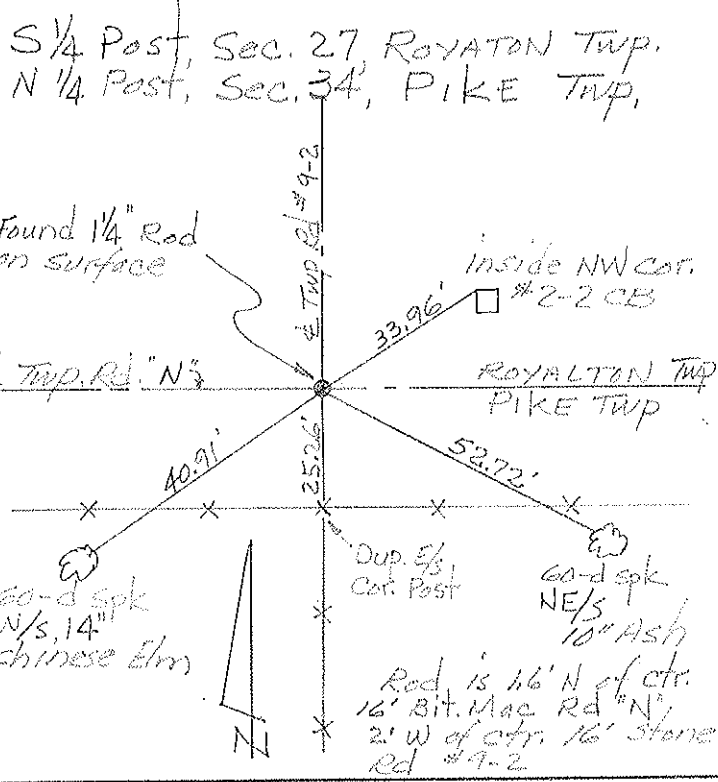 S 1/4 Post, Sec. 27, ROYATON TWP.
N 1/4 Post, Sec. 34, PIKE TWP,
℄ Twp Rd #9-2
Found 1 1/4" Rod
on surface
inside NW cor.
#2-2 CB
33.96'
Twp. Rd. "N"
ROYALTON TWP
PIKE TWP
40.91'
25.26'
52.72'
Dup. E/s
Cor. Post
60-d spk
N/s, 14"
chinese Elm
60-d spk
NE/s
10" Ash
N
Rod is 1.6' N of ctr.
16' Bit. Mac Rd "N",
2' W of ctr. 16' Stone
Rd #9-2